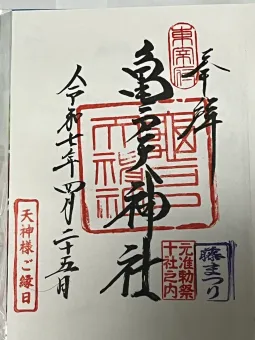 奉拝
東宰府
亀戸神社
令和七年四月二十五日
天神様ご縁日
元准勅祭
十社之内
藤まつり